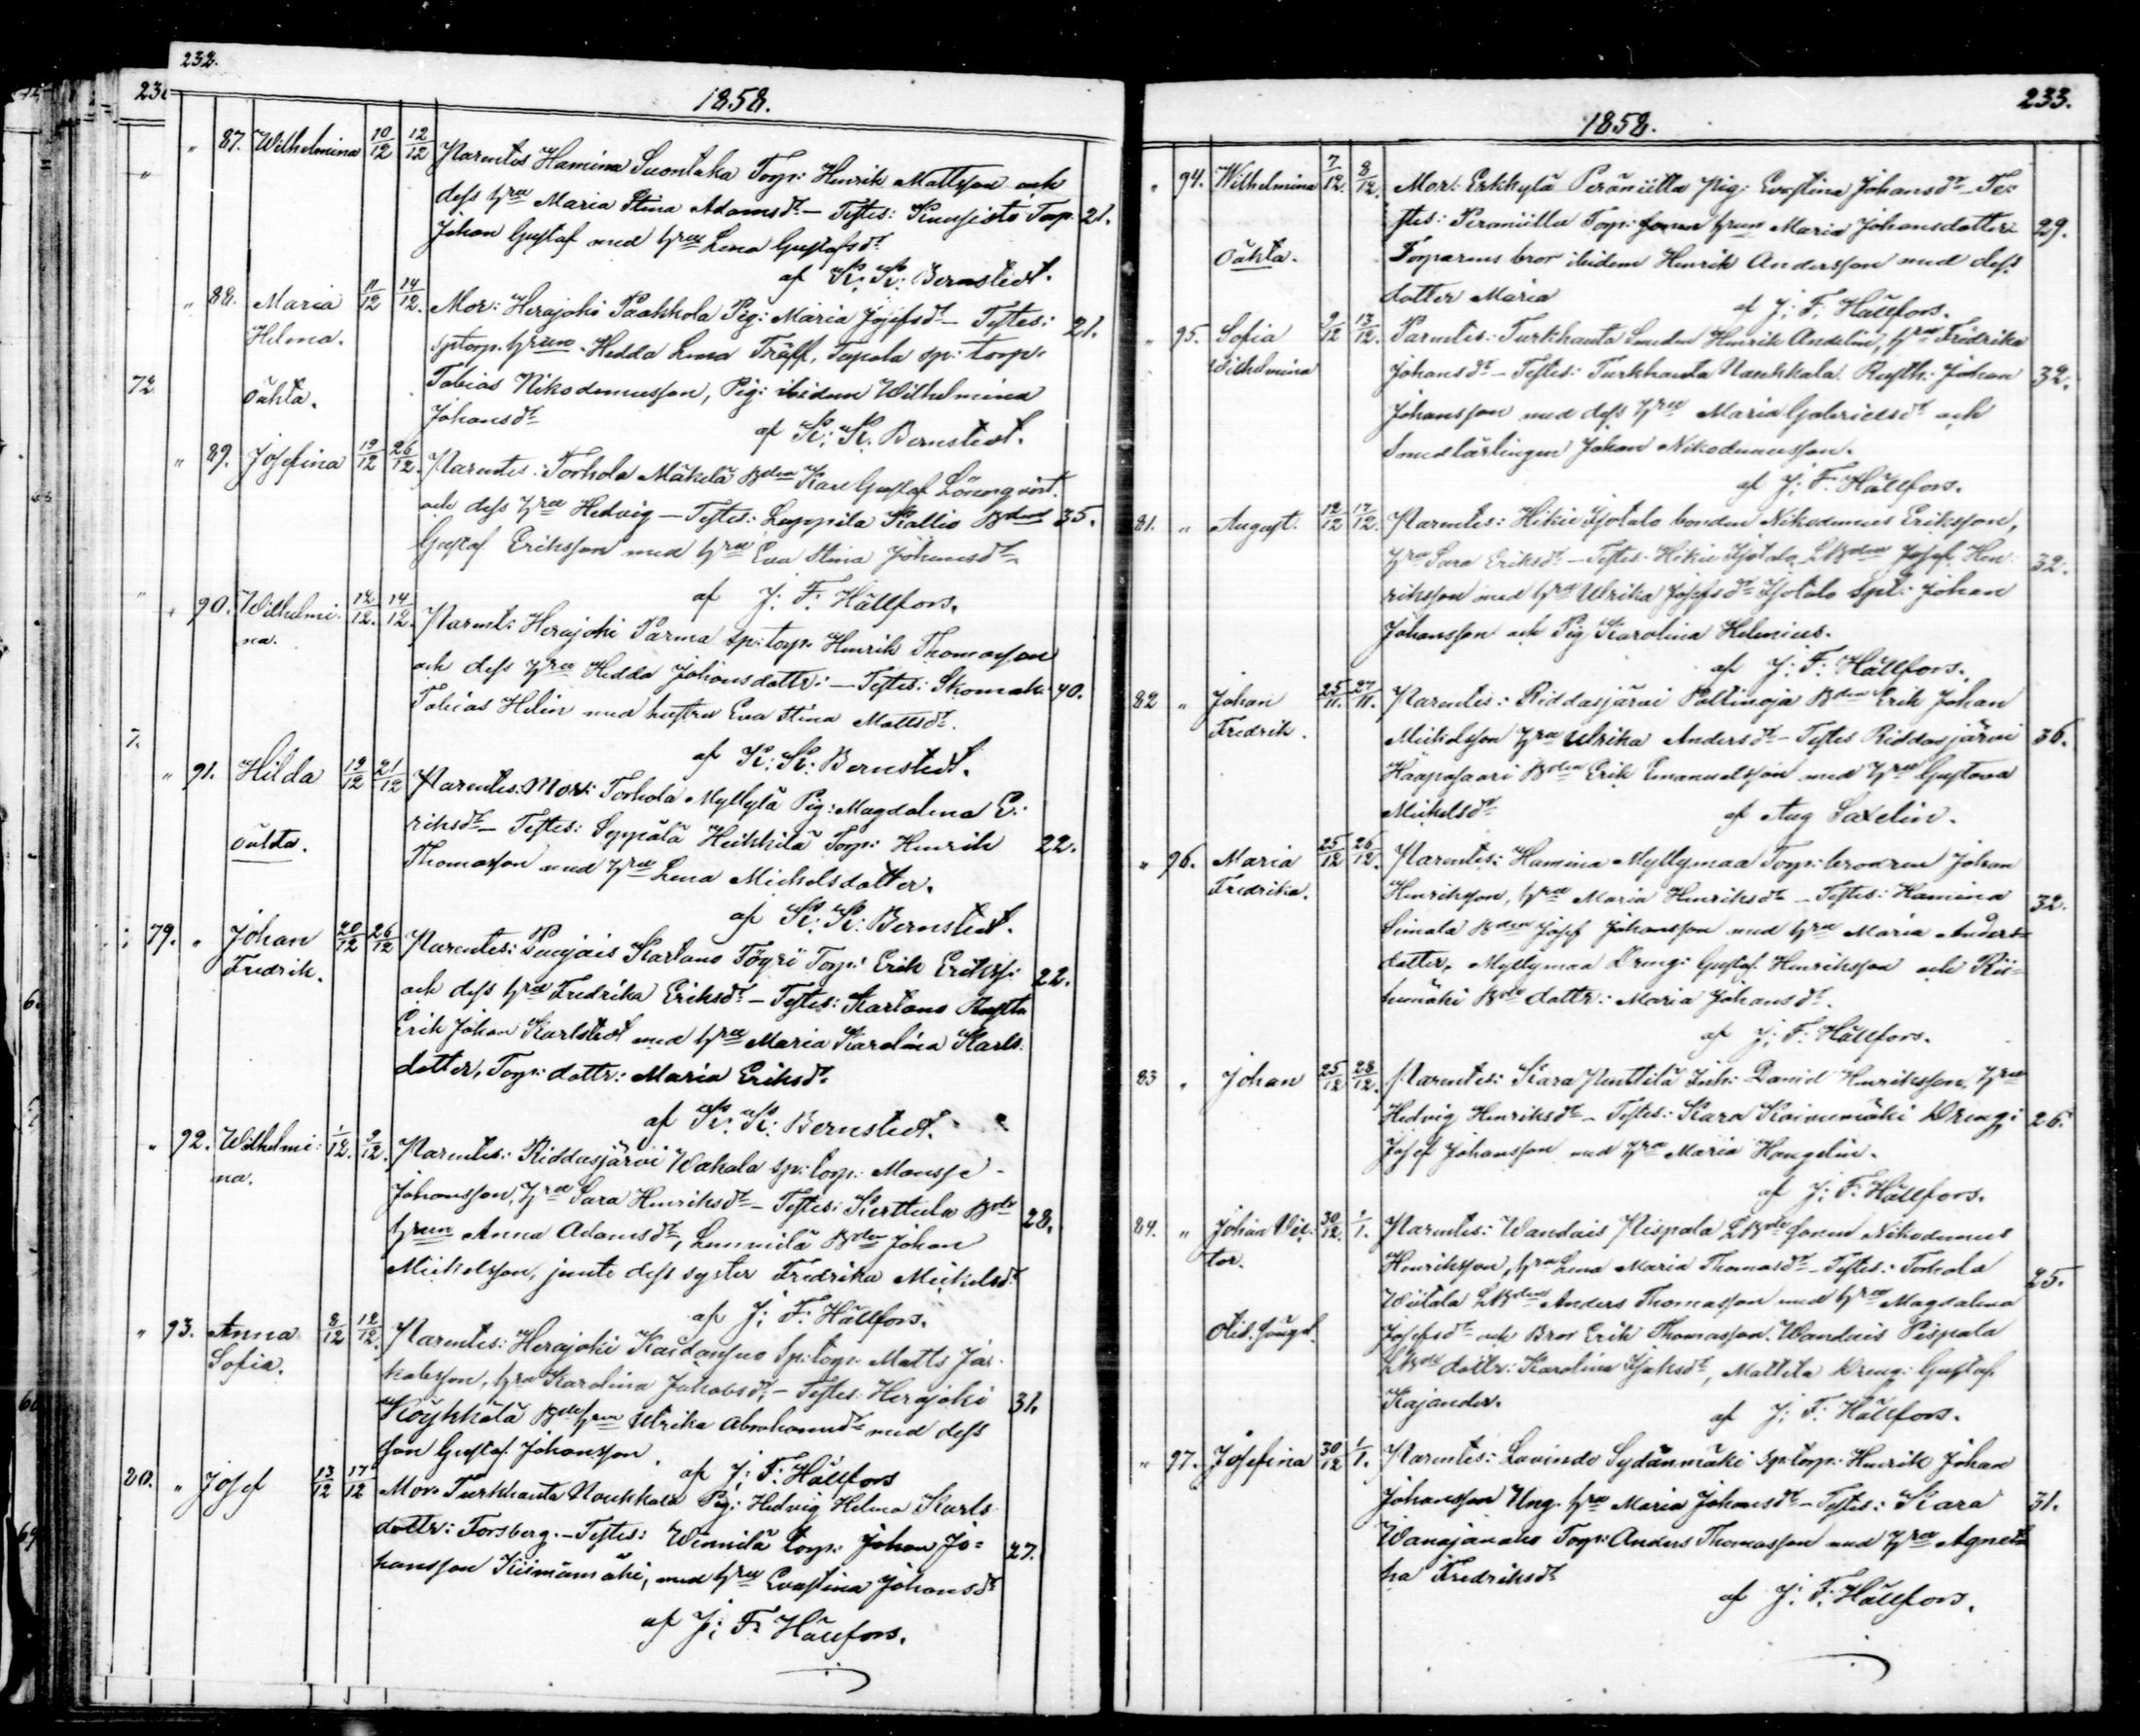 232.
1858.
" 87. Wilhelmina 10/12 12/12 Parentes Hamina Suontaka Torp: Henrik Mattsson och
dess hru Maria Stina Adamsdr – Testes: Kuusisto Torp. 21.
Johan Gustaf med hru Lena Gustafsdr
af K: K: Bernstedt.
" 88. Maria 11/12 14/12. Mor: Herajoki Paakkola Pig: Maria Josefsdr – Testes: 21.
Helena. sptorp. hrun Hedda Lena Träff, Tapola sp: torp.
Oäkta. Tobias Nikodemusson, Pig: ibidem Wilhelmina
Johansdr
af K: K. Bernstedt.
" 89. Josefina 19/12 26/12. Parentes: Torhola Mäkelä Bden Karl Gustaf Lönnqvist.
och dess hru Hedvig – Testes: Leppilä Kallio Bden 35.
Gustaf Eriksson med hru Eva Stina Johansdr
af J: F: Hällfors.
" 90. Wilhelmi- 12/12. 14/12. Parent: Herajoki Parma sp: torp. Henrik Thomasson
na. och dess hru Hedda Johansdottr: – Testes: Skomak: 40.
Tobias Helin med hustru Eva Stina Mattsdr.
af K: K: Bernstedt.
" 91. Hilda 19/12 21/12 Parentes: Mor: Torhola Myllylä Pig: Magdalena E:
riksdr – Testes: Seppälä Heikkilä Torp: Henrik 22.
oäkta. Thomasson med hru Lena Michelsdotter.
af K: K: Bernstedt.
79. " Johan 20/12 26/12 Parentes: Kartano Töyri Torp: Erik Erikss: 22.
Fredrik. och dess hru Fredrika Eriksdr – Testes: Kartano Rusth
Erik Johan Karlstedt med hru Maria Karolina Karls:
dotter, Torp: dottr: Maria Eriksdr
af K: K: Bernstedt.
" 92. Wilhelmi: 1/12. 9/12. Parentes: Riddasjärvi Wakala sp: torp: Mansse
na. Johansson, hru Sara Henriksdr – Testes: Kerttula Bde 28.
hrun Anna Adamsdr, Lunnilä Bden Johan
Michelsson, jemte dess syster Fredrika Michelsdr
af J: F: Hällfors.
" 93. Anna 8/12 12/12. Parentes: Herajoki Kaidansuo Sp: torp: Matts Ja-
Sofia. kobsson, hru Karolina Jakobsdr – Testes: Herajoki 31.
Köykkälä Bde hrun Ulrika Abrahamsdr med dess
son Gustaf Johansson.
af J: F: Hällfors
20. " Josef 13/12 17/12 Mor: Turkhauta Noukkala Pig: Hedvig Helena Karls
dottr: Forsberg. – Testes: Winnilä torp: Johan Jo= 27.
hansson Kiimamäki, med hru Evastina Johansdr
af J: F: Hällfors.
233.
1858.
" 94. Wilhelmina 7/12. 8/12. Mor: Erkkylä Peräniitta Pig: Evastina Johansdr – Te:
stes: Peraniitta Torp: hrun Maria Johansdotter 29.
Oäkta. Torparens bror ibidem Henrik Andersson med dess
dotter Maria af J: F: Hällfors.
" 95. Sofia 9/12 13/12. Parentes: Turkhauta Smeden Henrik Andelin, hru Fredrika
Wilhelmina Johansdr – Testes: Turkhauta Naukkala Rusth: Johan 32.
Johansson med dess hru Maria Gabrielsdr och
Smedlärlingen Johan Nikodemusson.
af J: F: Hällfors.
81. " August. 12/12 17/12. Parentes: Hikiä bonden Nikodemus Eriksson,
hru Sara Eriksdr – Testes: Hikiä Josef Hen- 32.
riksson med hru Ulrika Josefsdr Johan
Johansson och Pig Karolina Helenius.
af J: F: Hällfors.
82 " Johan 25/11. 27/11. Parentes: Riddasjärvi Paltinoja Bden Erik Johan
Fredrik. Michelsson hru Ulrika Andersdr – Testes Riddasjärvi 36.
Haapasaari Bden Erik Emanuelsson med hru Gustava
Michelsdr af Aug Saxelin.
" 96. Maria 25/12 26/12. Parentes: Hamina Myllymaa Torp: brodren Johan
Fredrika. Henriksson, hru Maria Henriksdr – Testes: Hamina 32.
Simala Bden Josef Johansson med hru Maria Anders=
dotter, Myllymaa Dreng: Gustaf Henriksson och Rii=
himäki Bde dottr: Maria Johansdr.
af J: F: Hällfors.
83 " Johan 25/12 28/12. Parentes: Kara Penttilä Inh: David Henriksson, hru
Hedvig Henriksdr – Testes: Kara Koivumäki Dreng: 26.
Josef Johansson med hru Maria Hongelin.
af J: F: Hällfors.
84. " Johan Vic- 30/12. 1/1. Parentes: Wandais Pispala sonen Nikodemus
tor. Henriksson, hru Lena Maria Thomasdr – Testes: Torhola 25.
Wiitala Anders Thomasson med hru Magdalena
Josefsdr och Bror Erik Thomasson. Wandais Pispala
dottr: Karolina Isaksdr, Mattila Dreng: Gustaf
Kajander. af J: F: Hällfors.
" 97. Josefina 30/12 1/1. Parentes: Lavinde Sydänmäki Sp: torp: Henrik Johan
Johansson Ung. hru Maria Johansdr – Testes: Kara 31.
Wanajanaho Torp: Anders Thomasson med hru Agneta
Fredriksdr
af J: F: Hällfors.